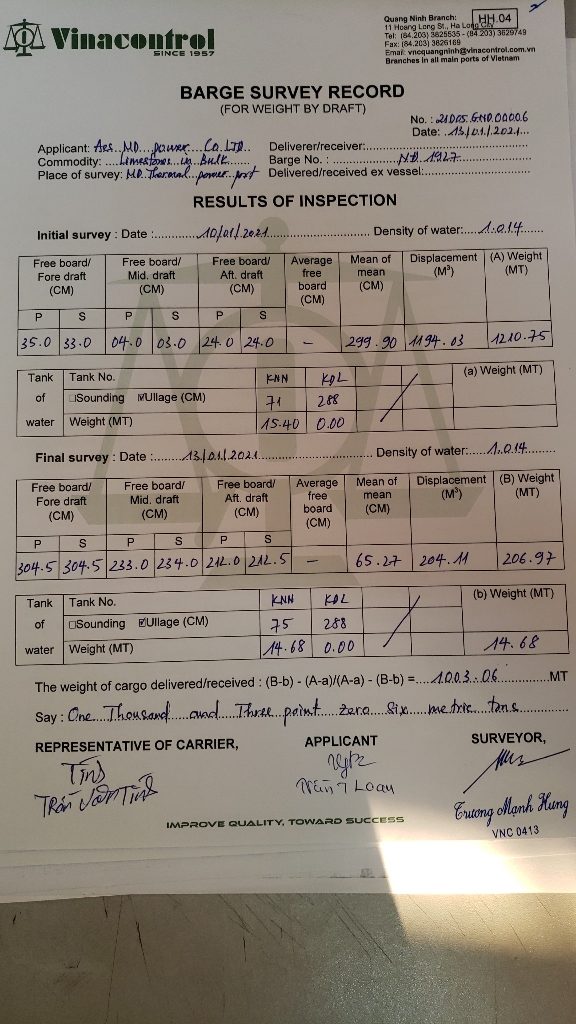 Vinacontrol
SINCE 1957
Quang Ninh Branch: HH.04
11 Hoang Long St., Ha Long City
Tel: (84.203) 3825535 - (84.203) 3629749
Fax: (84.203) 3826169
Email: vncquangninh@vinacontrol.com.vn
Branches in all main ports of Vietnam
BARGE SURVEY RECORD
(FOR WEIGHT BY DRAFT)
No. : 21D05.GND.00006
Date: ..13/01/2021...
Applicant: Aes MD power Co.LTD Deliverer/receiver:
Commodity: Limestones in Bulk Barge No. : NĐ 1927
Place of survey: MD Thermal power port Delivered/received ex vessel:
RESULTS OF INSPECTION
Initial survey : Date : 10/01/2021 Density of water: 1.014
Free board/ Fore draft (CM) Free board/ Mid. draft (CM) Free board/ Aft. draft (CM) Average free board (CM) Mean of mean (CM) Displacement (M³) (A) Weight (MT)
P S P S P S
35.0 33.0 04.0 03.0 24.0 24.0 - 299.90 1194.03 1210.75
Tank of water Tank No. KNN KDL (a) Weight (MT)
☐Sounding ☑Ullage (CM) 71 288
Weight (MT) 15.40 0.00
Final survey : Date : 13/01/2021 Density of water: 1.014
Free board/ Fore draft (CM) Free board/ Mid. draft (CM) Free board/ Aft. draft (CM) Average free board (CM) Mean of mean (CM) Displacement (M³) (B) Weight (MT)
P S P S P S
304.5 304.5 233.0 234.0 212.0 212.5 - 65.27 204.11 206.97
Tank of water Tank No. KNN KDL (b) Weight (MT)
☐Sounding ☑Ullage (CM) 75 288
Weight (MT) 14.68 0.00 14.68
The weight of cargo delivered/received : (B-b) - (A-a)/(A-a) - (B-b) = 1003.06 MT
Say : One Thousand and Three point zero six metric tons
REPRESENTATIVE OF CARRIER, APPLICANT SURVEYOR,
Tĩnh
Trần Văn Tĩnh Trần T Loan
Trương Mạnh Hùng
VNC 0413
IMPROVE QUALITY, TOWARD SUCCESS